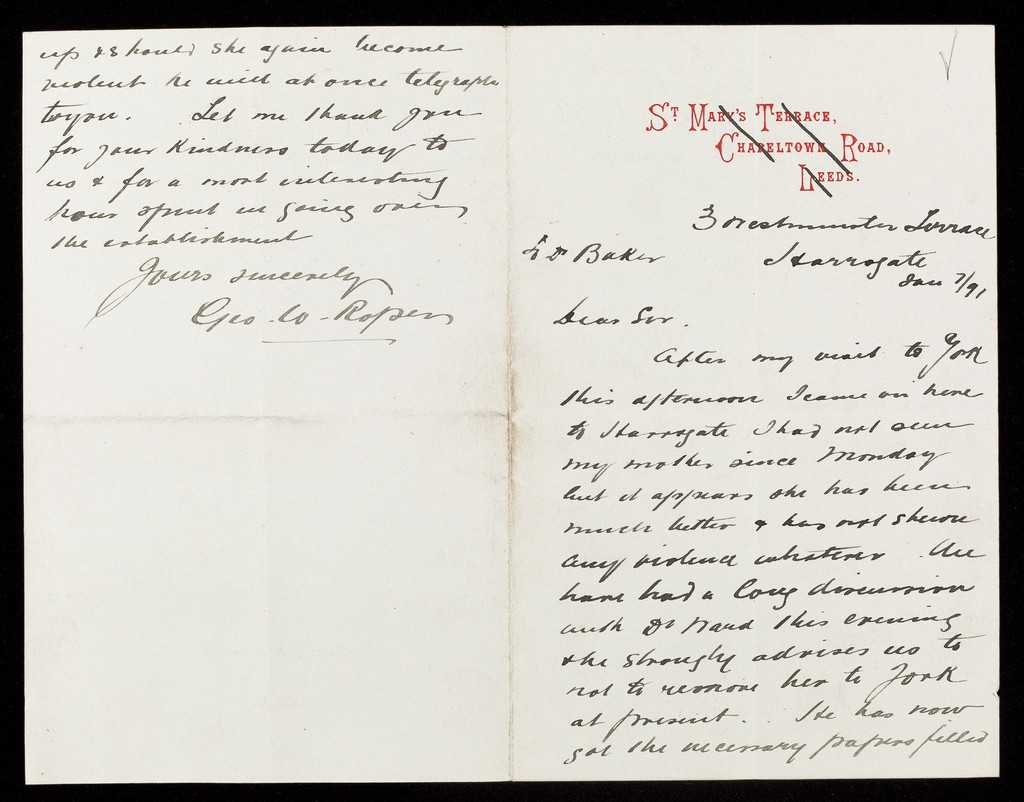 St Mary's Terrace,
Chapeltown Road,
Leeds.
3 Westminster Terrace
Harrogate
Jan 7/91
To Dr Baker
Dear Sir.
After my visit to York
this afternoon I came on here
to Harrogate I had not seen
my mother since Monday
but it appears she has been
much better & has not shewn
any violence whatever. We
have had a long discussion
with Dr Ward this evening
& he strongly advises us to
not to remove her to York
at present. He has now
got the necessary papers filled
up & should she again become
violent he will at once telegraph
to you. Let me thank you
for your kindness today to
us & for a most interesting
hour spent in going over
the establishment
Yours sincerely
Geo. W. Roper